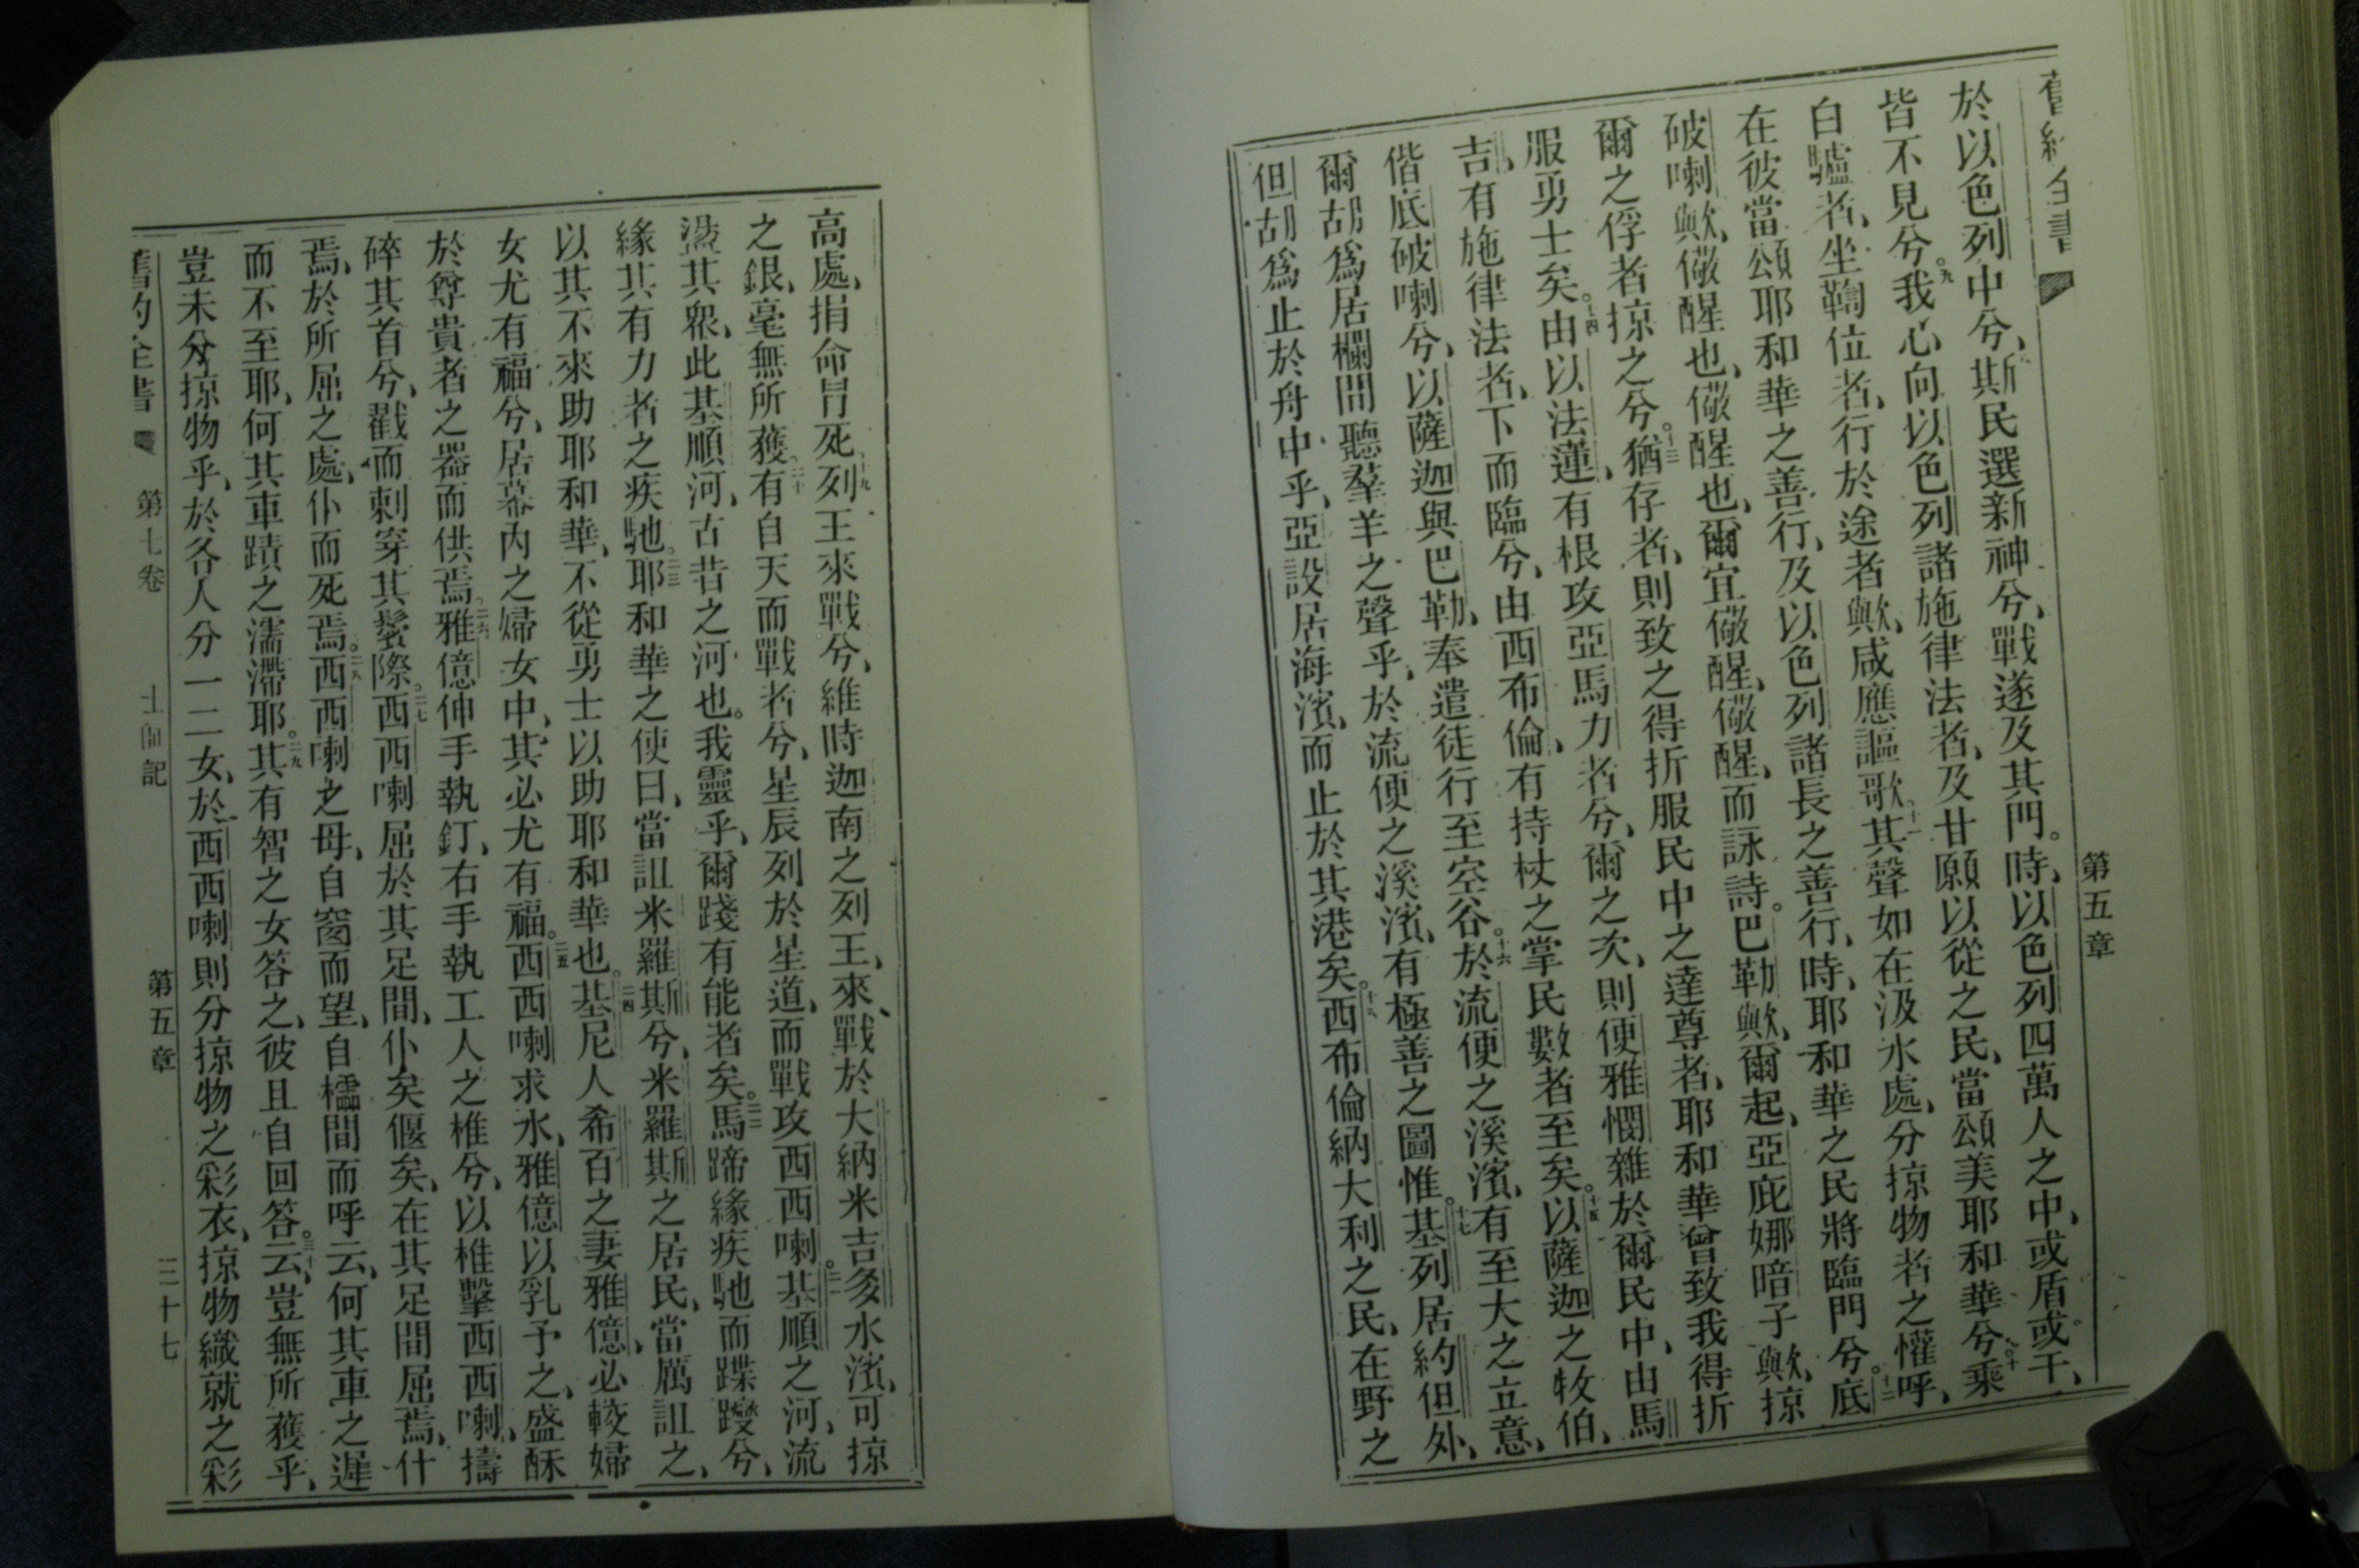 舊約全書
第五章
於以色列中兮、斯民選新神兮、戰遂及其門。時、以色列四萬人之中、或盾或干、
皆不見兮。九我心向以色列諸施律法者、及甘願以從之民、當頌美耶和華兮。十乘
白驢者、坐鞫位者、行於途者歟、咸應謳歌。十一其聲如在汲水處、分掠物者之懽呼、
在彼當頌耶和華之善行、及以色列諸長之善行、時、耶和華之民將臨門兮。十二底
破喇歟、儆醒也、儆醒也、爾宜儆醒、儆醒、而詠詩。巴勒歟、爾起、亞庇娜暗子歟、掠
爾之俘者掠之兮。十三猶存者、則致之得折服民中之達尊者、耶和華曾致我得折
服勇士矣。十四由以法蓮、有根攻亞馬力者兮、爾之次、則便雅憫雜於爾民中、由馬
吉、有施律法者、下而臨兮、由西布倫、有持杖之掌民數者至矣。十五以薩迦之牧伯、
偕底破喇兮、以薩迦與巴勒、奉遣徒行至空谷。十六於流便之溪濱、有至大之立意、
爾胡爲居欄間聽羣羊之聲乎、於流便之溪濱、有極善之圖惟。十七基列居約但外、
但胡爲止於舟中乎、亞設居海濱、而止於其港矣。十八西布倫納大利之民、在野之
高處、捐命冒死。十九列王來戰兮、維時迦南之列王、來戰於大納米吉多水濱、可掠
之銀、毫無所獲。二十有自天而戰者兮、星辰列於星道、而戰攻西西喇。二一基順之河、流
盪其衆、此基順河、古昔之河也。我靈乎、爾踐有能者矣。二二馬蹄緣疾馳而蹀躞兮、
緣其有力者之疾馳。二三耶和華之使曰、當詛米羅斯兮、米羅斯之居民、當厲詛之、
以其不來助耶和華、不從勇士以助耶和華也。二四基尼人希百之妻雅億、必較婦
女尤有福兮、居幕內之婦女中、其必尤有福。二五西西喇求水、雅億以乳予之、盛酥
於尊貴者之器而供焉。二六雅億伸手執釘、右手執工人之椎兮、以椎擊西西喇、擣
碎其首兮、戳而刺穿其鬢際。二七西西喇屈於其足間、仆矣偃矣、在其足間屈焉、什
焉、於所屈之處、仆而死焉。二八西西喇之母、自窗而望、自櫺間而呼云、何其車之遲
而不至耶、何其車蹟之濡滯耶。二九其有智之女答之、彼且自回答。三十云、豈無所獲乎、
豈未分掠物乎、於各人分一二女、於西西喇則分掠物之彩衣、掠物織就之彩
舊約全書 第七卷 士師記 第五章 三十七